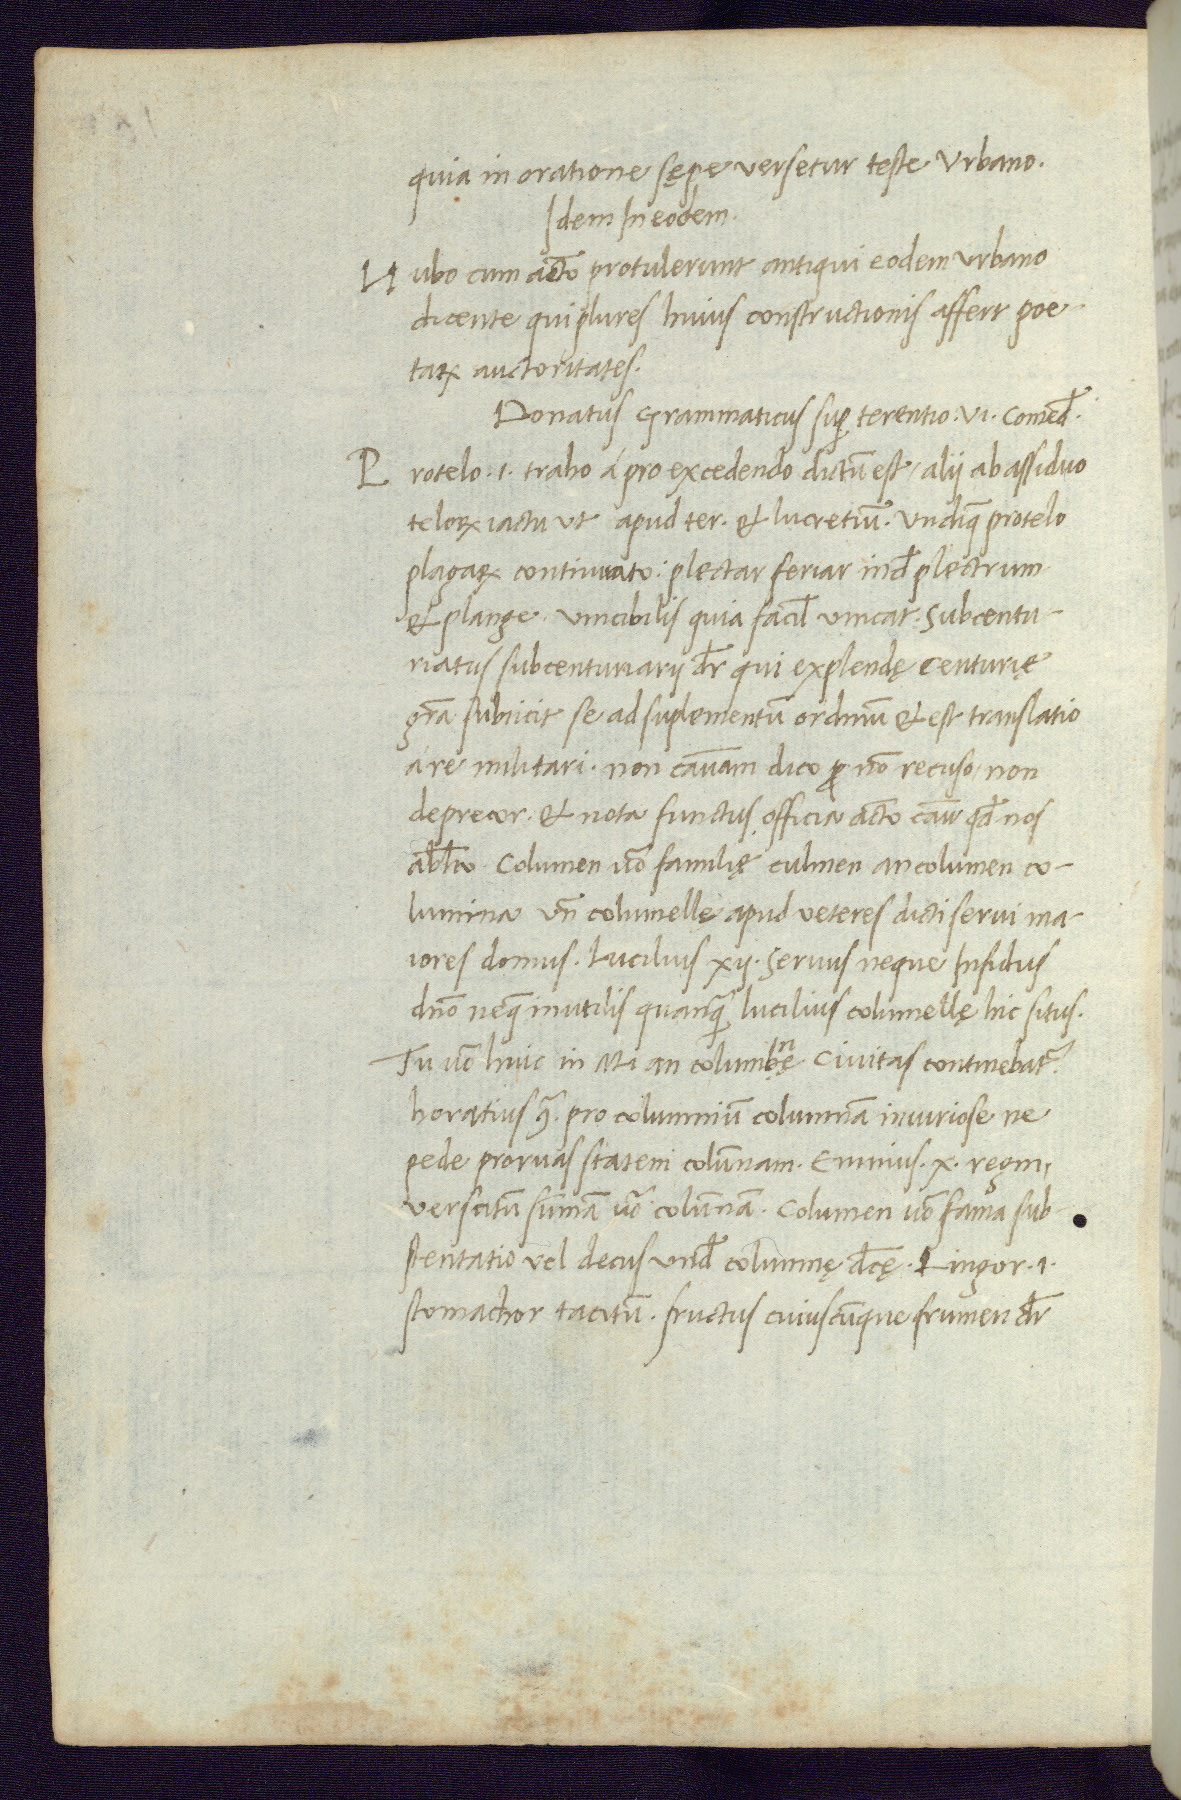 quia in oratione sępe versetur teste Urbano.
Idem. In eodem.
Nubo cum actō protulerunt antiqui eodem urbano
dicente qui plures huius constructionis affert poe-
taꝝ auctoritates.
Donatus Grammaticus suꝑ terentio. VI. Comed̄.
Protelo .1. traho á pro excedendo dictū est / alii ab assiduo
teloꝝ iactu ut apud ter. & lucretiū. Undiq̄ protelo
plagaꝝ continuato: plectar feriar ind̄ plectrum
& plange. vincibilis quia facil̄ vincat. Subcentu-
riatus subcenturiarij dr̄ qui explendę Centurię
grā subiicit se ad suplementū ordinū & est translatio
á re militari. non caūam dico ꝓ nō recuso / non
deprecor. & nota functus officia actō caūr qd̄ nos
abl̄to. Columen uō familię culmen an columen co-
lumina uñ columelle apud veteres dicti servi ma-
iores domus. Lucilius xij. Servus neque Infidus
dnō neq̄ inutilis quanq̄ lucilius columellę hic situs.
Tu uō huic in Mi an columbnę Civitas continebat̄.
horatius q̄. pro columniū columnā iniuriose ne
pede proruas statem colūnam. Ennius. x. regm,
verscitū sumā uō colūnā. Columen uō fama sub-
stentatio vel decus und̄ columnę dc̄ę. Lingor .1.
stomachor tacitū. fructus cuiuscūque frumen dr̄